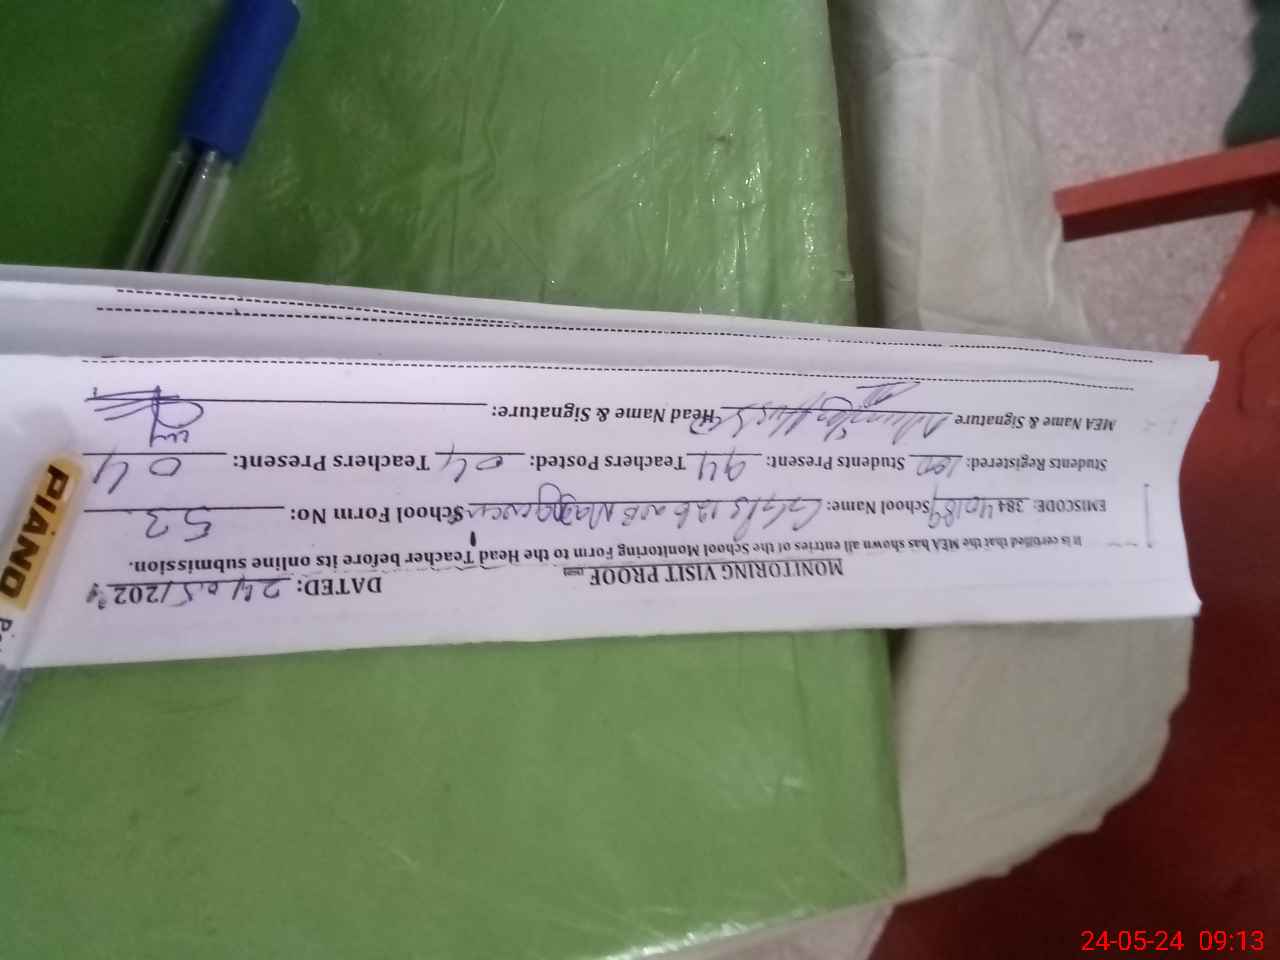 MONITORING VISIT PROOF DATED: 24/05/202
It is certified that the MEA has shown all entries of the School Monitoring Form to the Head Teacher before its online submission.
EMISCODE: 384 40189 School Name: School Form No: 53
Students Registered: 100 Students Present: 94 Teachers Posted: 04 Teachers Present: 04
MEA Name & Signature Head Name & Signature:
PIANO
24-05-24 09:13